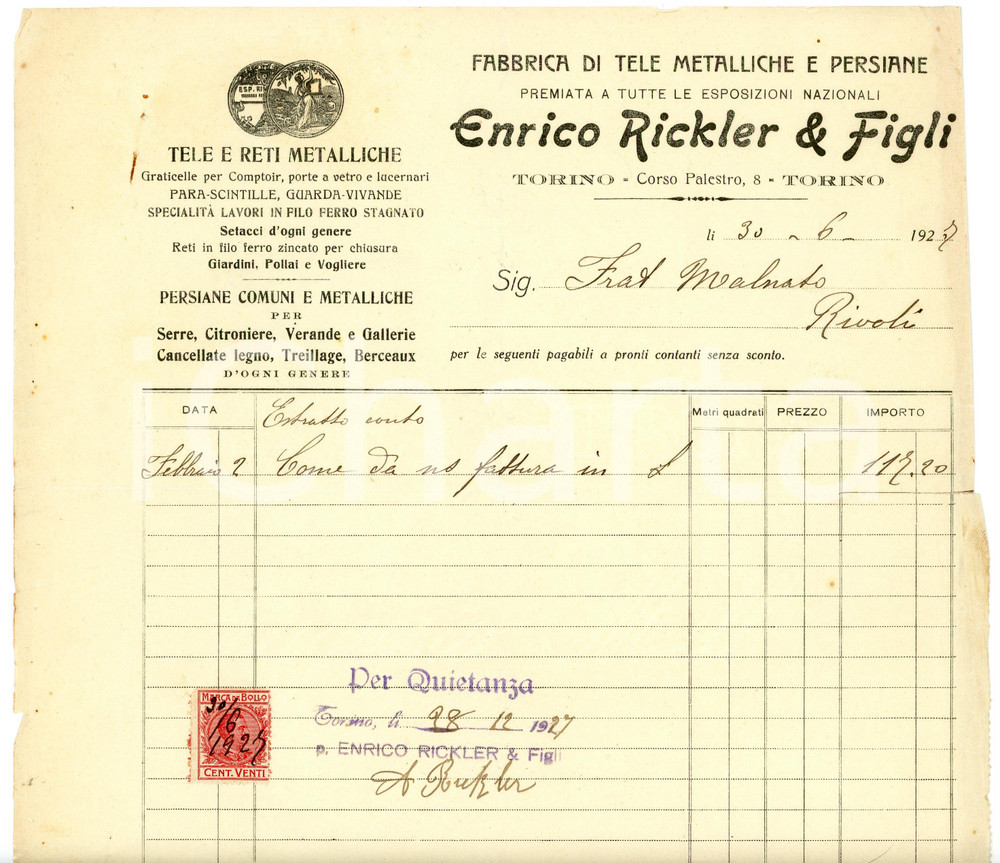 ESP. RI
TELE E RETI METALLICHE
Graticelle per Comptoir, porte a vetro e lucernari
PARA-SCINTILLE, GUARDA-VIVANDE
SPECIALITÀ LAVORI IN FILO FERRO STAGNATO
Setacci d'ogni genere
Reti in filo ferro zincato per chiusura
Giardini, Pollai e Vogliere
PERSIANE COMUNI E METALLICHE
PER
Serre, Citroniere, Verande e Gallerie
Cancellate legno, Treillage, Berceaux
D'OGNI GENERE
FABBRICA DI TELE METALLICHE E PERSIANE
PREMIATA A TUTTE LE ESPOSIZIONI NAZIONALI
Enrico Rickler & Figli
TORINO - Corso Palestro, 8 - TORINO
li 30 - 6 - 1927
Sig. Frat Malnato
Rivoli
per le seguenti pagabili a pronti contanti senza sconto.
DATA Estratto conto Metri quadrati PREZZO IMPORTO
Febbraio 2 Come da ns fattura in £ 117.20
Per Quietanza
Torino, li 28 12 1927
p. ENRICO RICKLER & Figli
A Rickler
MARCA DA BOLLO
30/
16
1927
CENT. VENTI